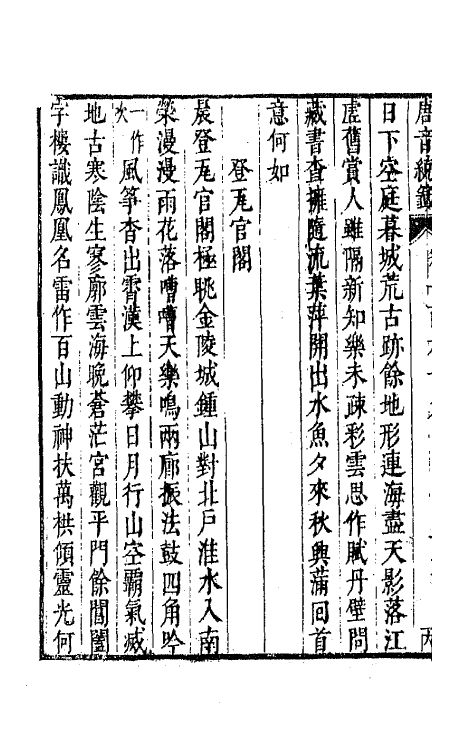 唐音統籖
日下空庭暮城荒古跡餘地形連海盡天影落江
虛舊賞人雖隔新知樂未疎彩雲思作賦丹壁問
藏書査擁隨流葉萍開出水魚夕來秋興滿回首
意何如
登瓦官閣
晨登瓦官閣極眺金陵城鍾山對北戶淮水入南
榮漫漫雨花落嘈嘈天樂鳴兩廊振法鼓四角吟
一作次風筝杳出霄漢上仰攀日月行山空霸氣滅
地古寒陰生寥廓雲海晚蒼茫宮觀平門餘閶闔
字樓識鳳凰名雷作百山動神扶萬栱傾靈光何